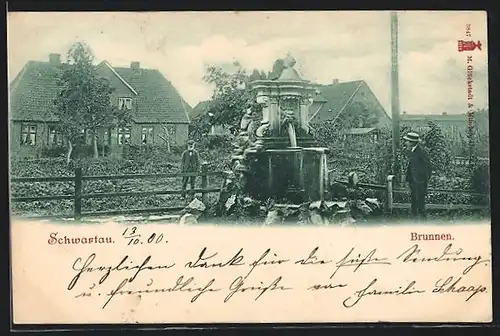 3847 M. Glückstadt & Münden
Schwartau. 13/10 00.
Brunnen.
Herzlichen Dank für die süße Sendung,
u. freundliche Grüße von Familie Schaap.